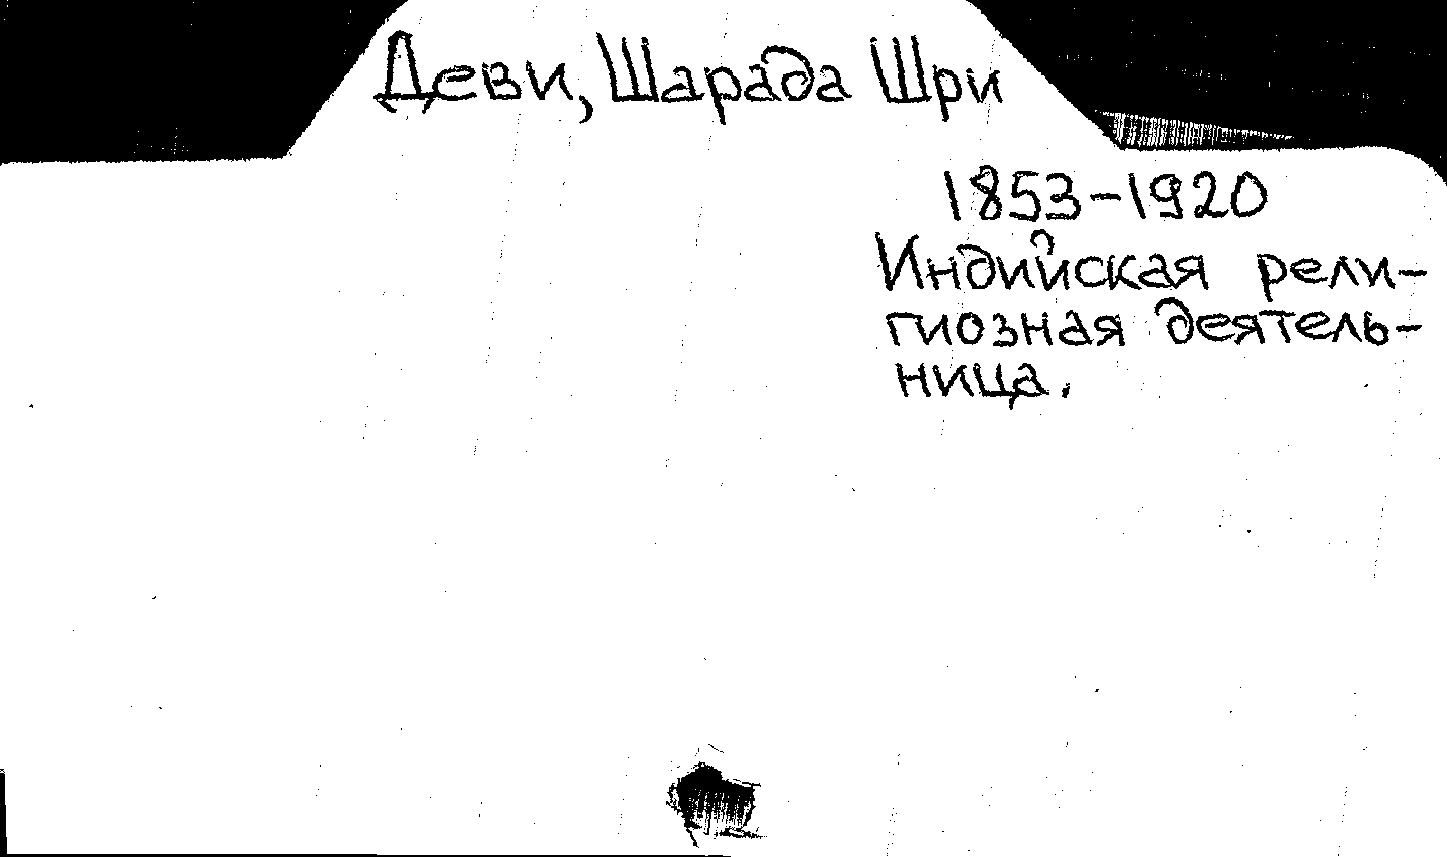 Деви, Шарада Шри
1853-1920
Индийская рели-
гиозная деятель-
ница.